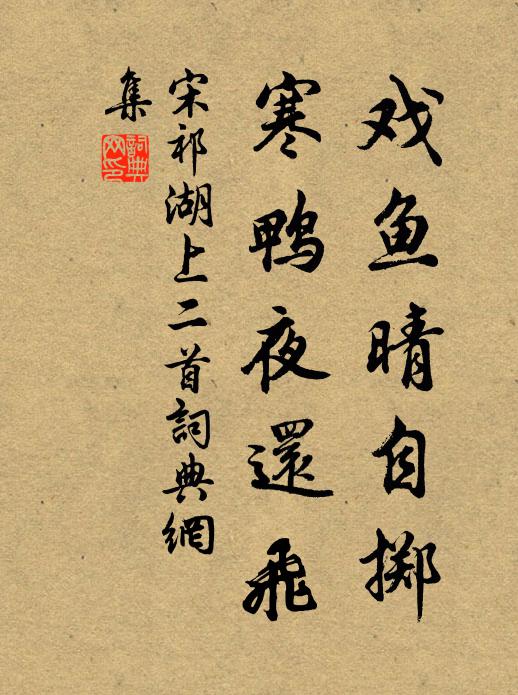 戏鱼晴自掷
寒鸭夜還飛
宋祁湖上二首詞典網
集
詞典
网印